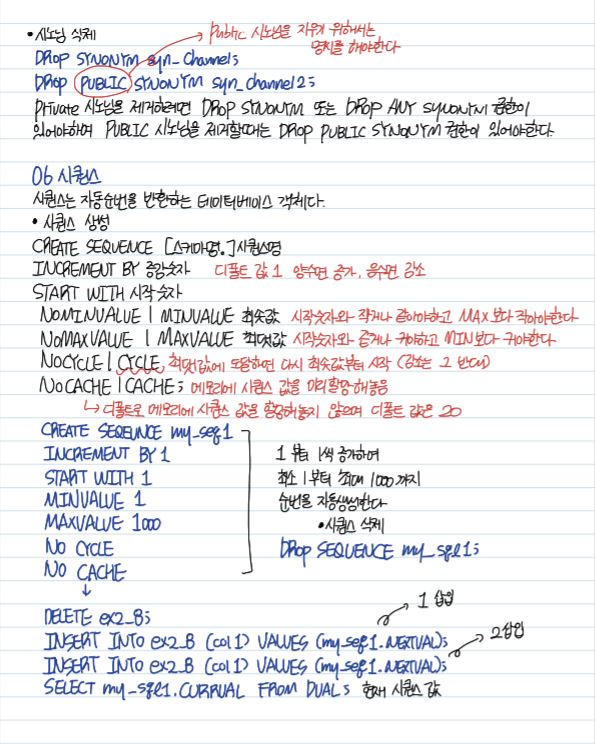 • 시노님 삭제
public 시노님을 지우기 위해서는
명시를 해야한다
DROP SYNONYM syn_channel;
DROP PUBLIC SYNONYM syn_channel2;
private 시노님을 제거하려면 DROP SYNONYM 또는 DROP ANY SYNONYM 권한이
있어야하며 PUBLIC 시노님을 제거할때는 DROP PUBLIC SYNONYM 권한이 있어야한다.
06 시퀀스
시퀀스는 자동순번을 반환하는 데이터베이스 객체다.
• 시퀀스 생성
CREATE SEQUENCE [스키마명.]시퀀스명
INCREMENT BY 증감숫자 디폴트 값 1 양수면 증가, 음수면 감소
START WITH 시작숫자
NOMINVALUE | MINVALUE 최솟값 시작숫자와 작거나 같아야하고 MAX보다 작아야한다
NOMAXVALUE | MAXVALUE 최댓값 시작숫자와 같거나 커야하고 MIN보다 커야한다
NOCYCLE | CYCLE 최댓값에 도달하면 다시 최솟값부터 시작 (감소는 그 반대)
NOCACHE | CACHE; 메모리에 시퀀스 값을 미리할당해놓음
↳ 디폴트로 메모리에 시퀀스 값을 할당해놓지 않으며 디폴트 값은 20
CREATE SEQEUNCE my_seq1
INCREMENT BY 1
START WITH 1
MINVALUE 1
MAXVALUE 1000
NO CYCLE
NO CACHE
1부터 1씩 증가하여
최소 1부터 최대 1000까지
순번을 자동생성한다
• 시퀀스 삭제
DROP SEQUENCE my_sqe1;
DELETE ex2_8;
1 삽입
INSERT INTO ex2_8 (col1) VALUES (my_seq1.NEXTVAL);
2삽입
INSERT INTO ex2_8 (col1) VALUES (my_seq1.NEXTVAL);
SELECT my_sqe1.CURRVAL FROM DUAL; 현재 시퀀스 값